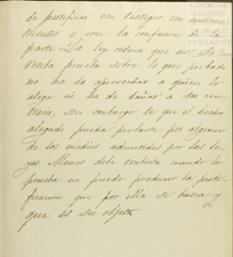 de justificar con testigos, con instru-
mentos o con la confesion de la
parte. La ley ordena que no
reciba prueba sobre lo que probado
no ha de aprovechar a quien lo
alega ni ha de dañar a su con-
trario, sin embargo de que el hecho
alegado pueda probarse por alguno
de los medios admitidos por las le-
yes. Menos debe recibirse cuando la
prueba no puede producir la justi-
ficacion que por ella se busca y
que es su objeto
CENTRO DE
FUNDACION